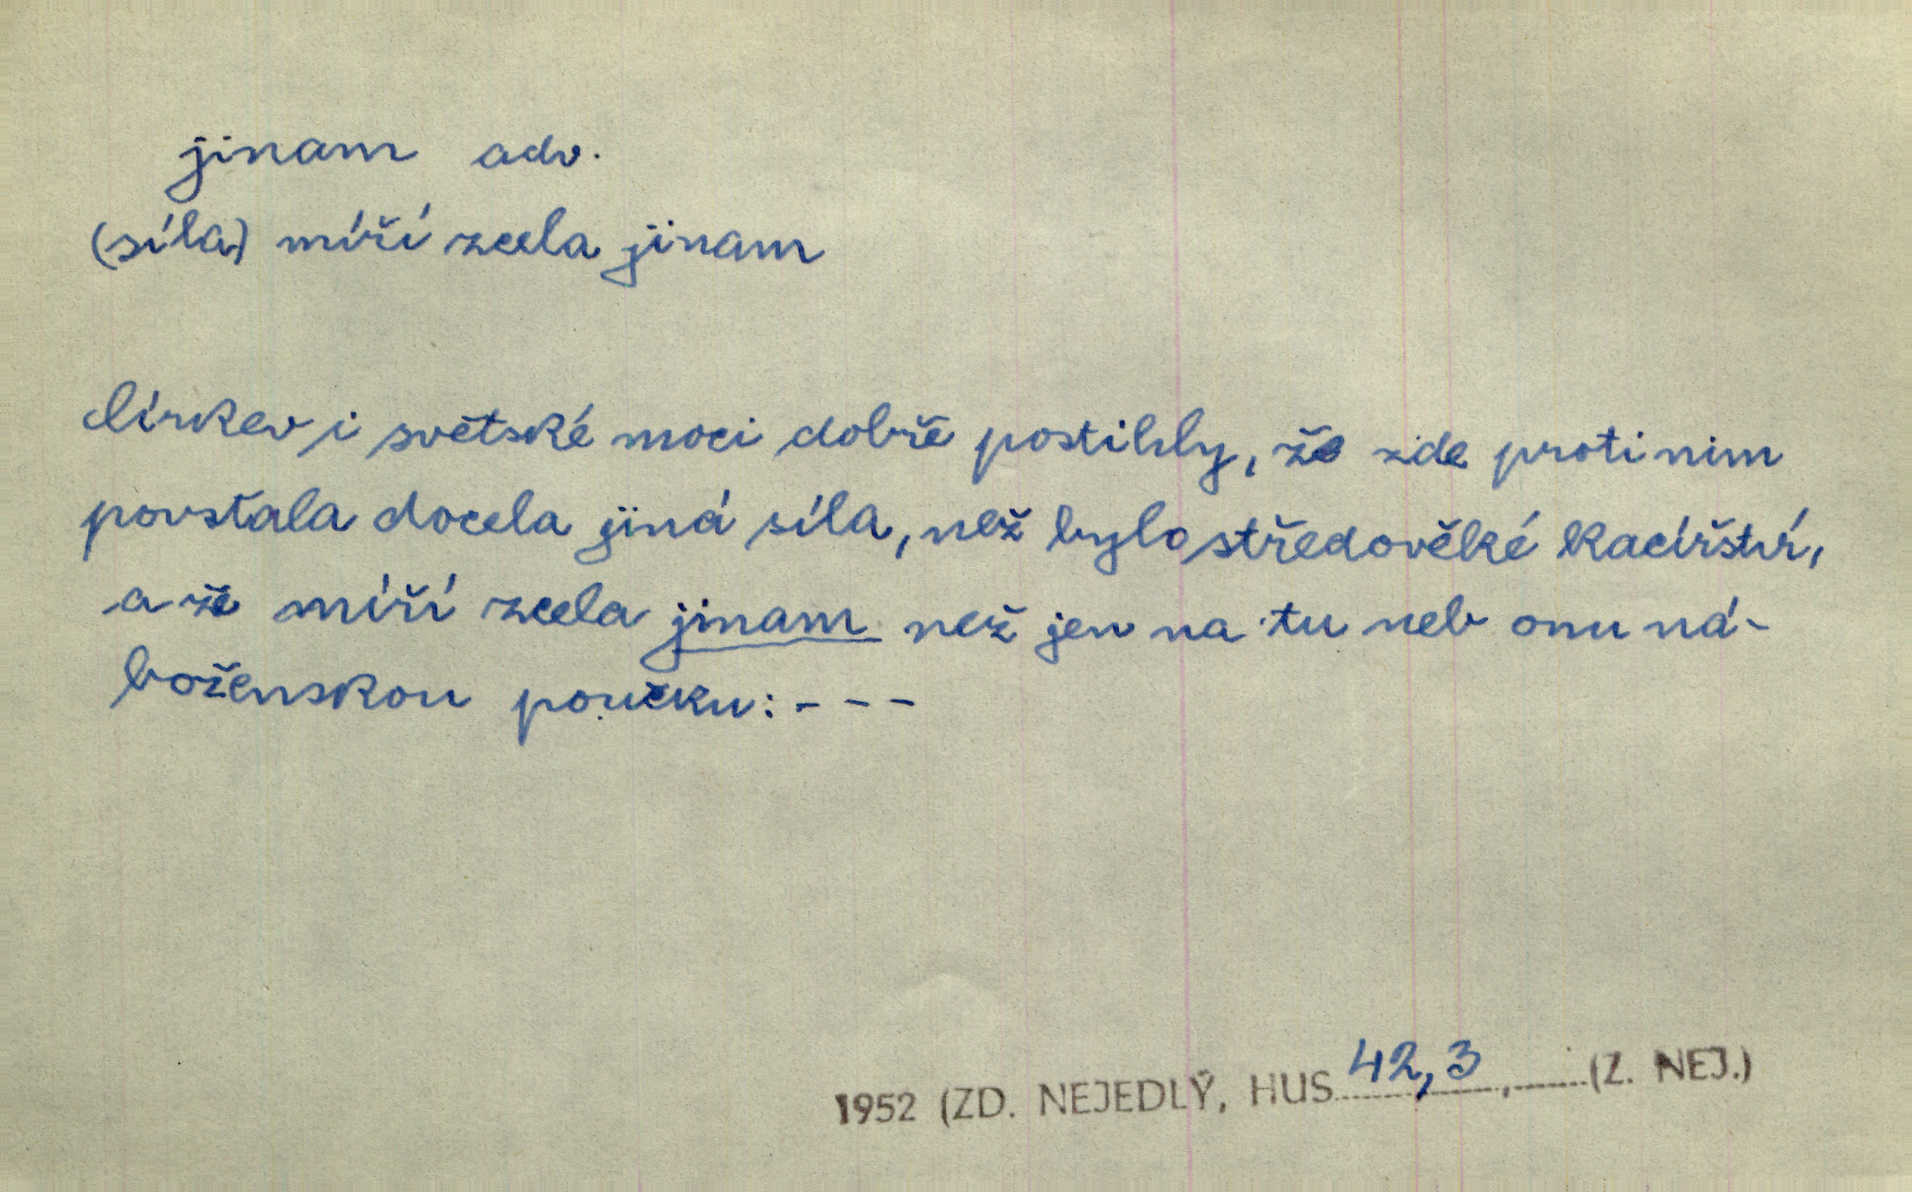 jinam adv.
(síla) míří zcela jinam
Církev i světské moci dobře postihly, že zde proti nim
povstala docela jiná síla, než bylo středověké kacířství,
a že míří zcela jinam než jen na tu neb onu ná-
boženskou poučku: - - -
1952 (ZD. NEJEDLÝ, HUS 42,3 , (Z. NEJ.)